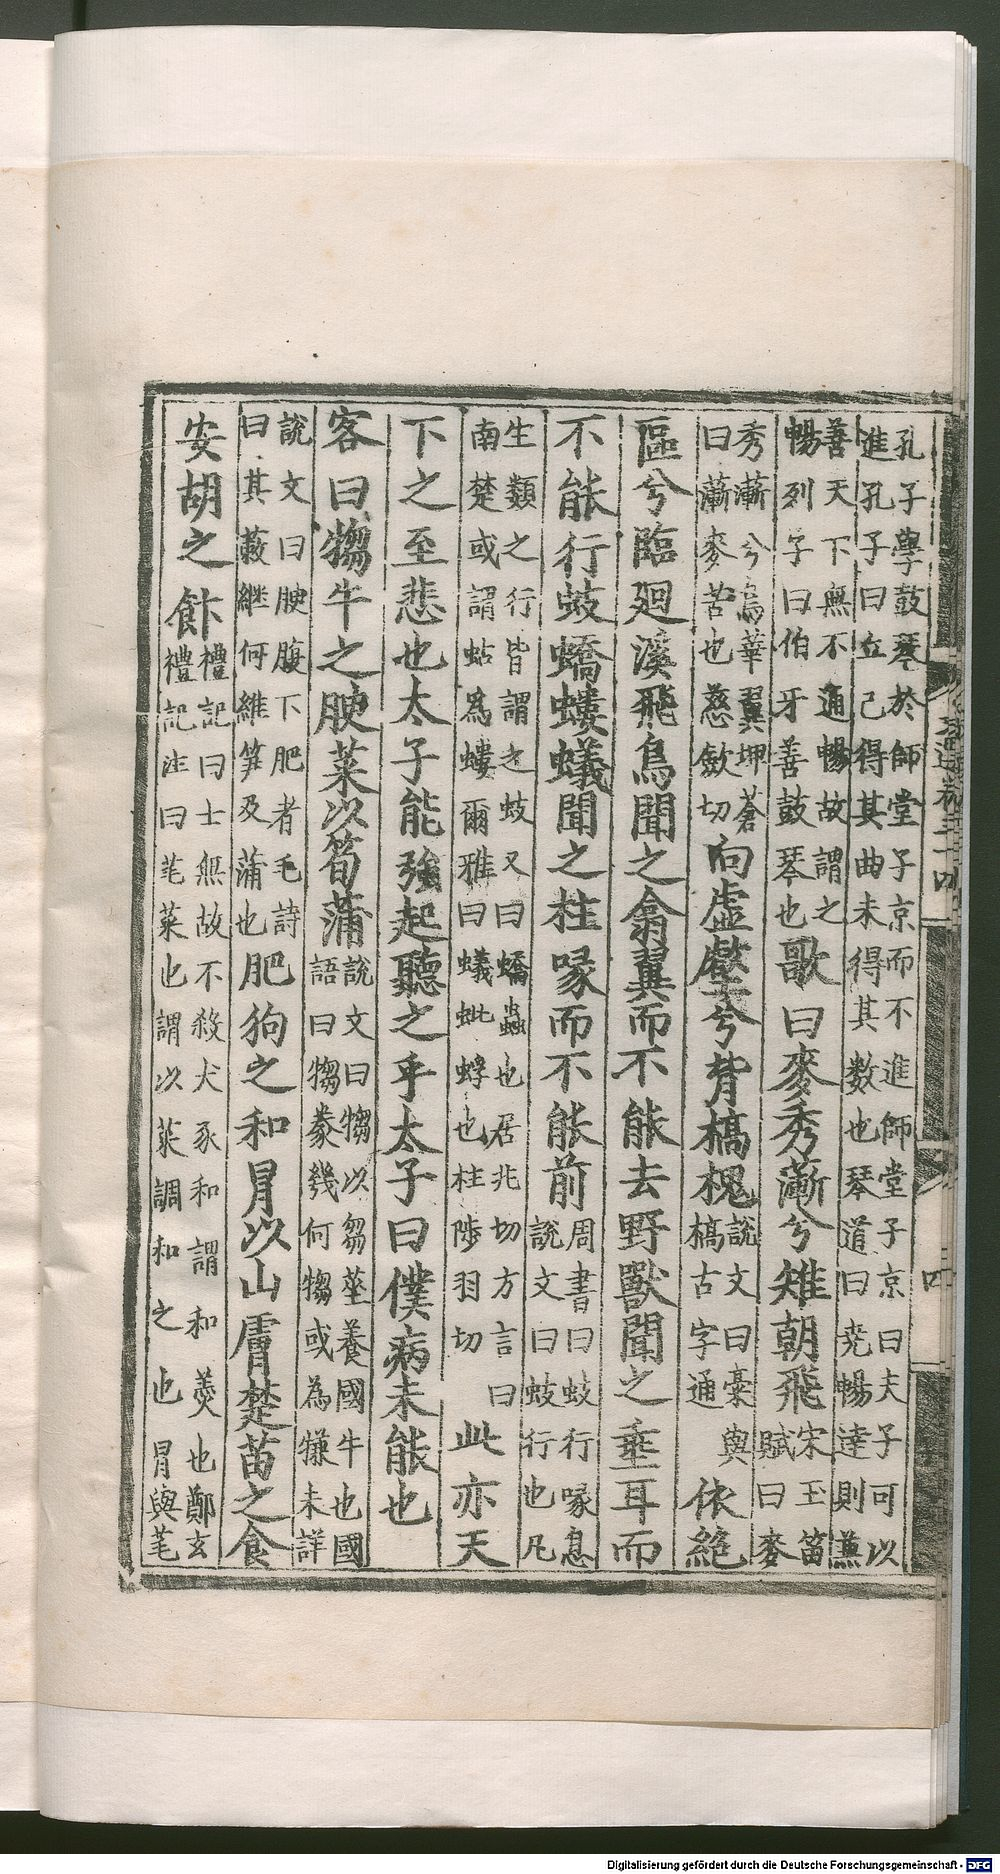 孔子學鼓琴於師堂子京而不進師堂子京曰夫子可以
進孔子曰丘已得其曲未得其數也琴道曰堯暢達則兼
善天下無不通暢故謂之
暢列子曰伯牙善鼓琴也歌曰麥秀蔪兮雉朝飛宋玉笛
賦曰麥
秀蔪兮鳥華翼埤蒼
曰蔪麥芒也慈斂切向虛壑兮背槁槐說文曰槀與
槁古字通依絕
區兮臨迴溪飛鳥聞之翕翼而不能去野獸聞之垂耳而
不能行蚑蟜螻蟻聞之柱喙而不能前周書曰蚑行喙息
說文曰蚑行也凡
生類之行皆謂之蚑又曰蟜蟲也居兆切方言曰
南楚或謂蛄為螻爾雅曰蟻蚍蜉也柱陟羽切此亦天
下之至悲也太子能強起聽之乎太子曰僕病未能也
客曰犓牛之腴菜以筍蒲說文曰犓以芻莝養國牛也國
語曰犓豢幾何犓或為犓未詳
說文曰腴腹下肥者毛詩
曰其蔌繼何維筍及蒲也肥狗之和冒以山膚楚苗之食
安胡之飰禮記曰士無故不殺犬豕和謂和羹也鄭玄
禮記注曰芼菜也謂以菜調和之也冒與芼
Digitalisierung gefördert durch die Deutsche Forschungsgemeinschaft - DFG